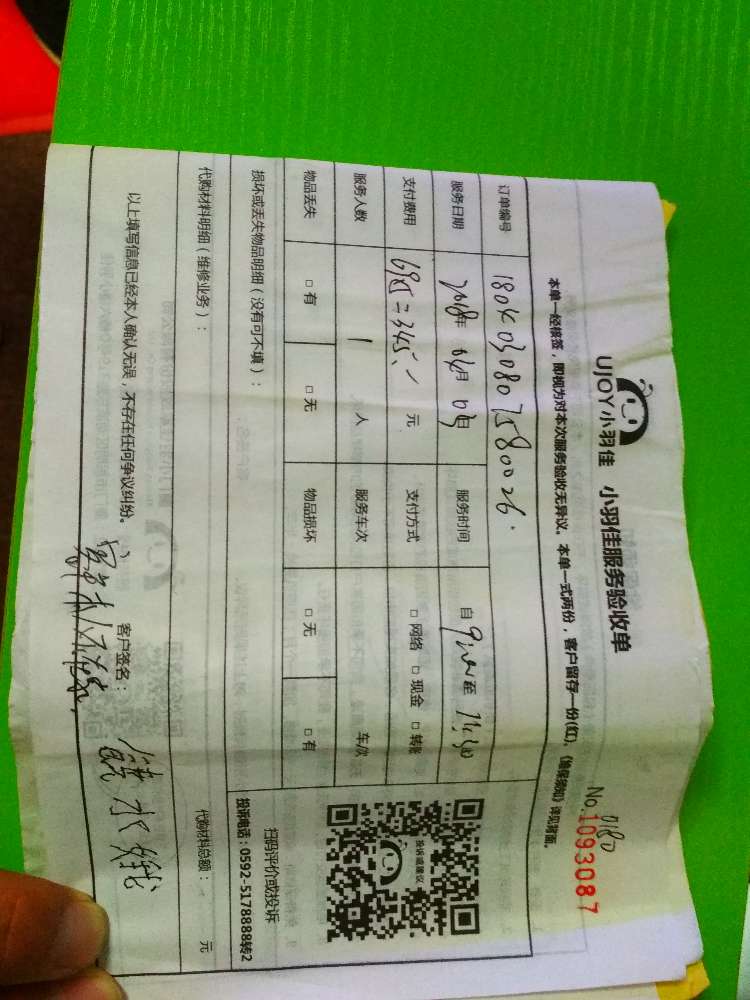 UJOY小羽佳 小羽佳服务验收单
No.1093087
0180
本单一经核签，即视为对本次服务验收无异议。本单一式两份，客户留存一份(红)，《储保须知》详见背面。
订单编号
服务日期 2018年 月 日 服务时间 自 至
支付费用 = 345 元 支付方式 □ 网络 □ 现金 □ 转账
服务人数 1 人 服务车次 车/次
物品丢失 □ 有 □ 无 物品损坏 □ 无 □ 有
投诉或建议
扫码评价或投诉
投诉电话：0592-5178888转2
损坏或丢失物品明细（没有可不填）：
代购材料明细（维修业务）： 代购材料总额： 元
以上填写信息已经本人确认无误，不存在任何争议纠纷。 客户签名：